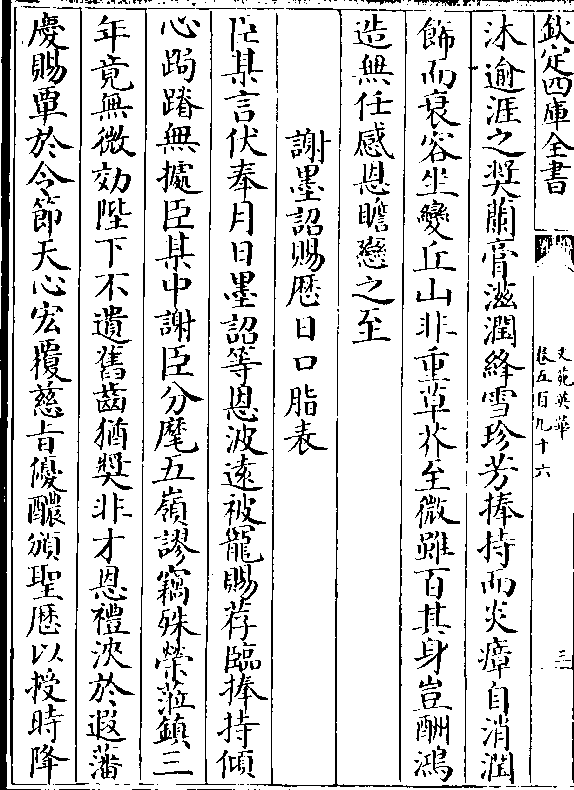 欽定四庫全書
文苑英華
卷五百九十六
三
沐逾涯之奬蘭膏滋潤絳雪珍芳捧持而炎瘴自消潤
飾而衰容坐變丘山非重草芥至微雖百其身豈酬鴻
造無任感恩瞻戀之至
謝墨詔賜厯日口脂表
臣某言伏奉月日墨詔等恩波遠被寵賜荐臨捧持傾
心跼蹐無據臣某中謝臣分麾五嶺謬竊殊榮蒞鎮三
年竟無微効陛下不遺舊齒猶奬非才恩禮浹於遐藩
慶賜覃於令節天心宏覆慈㫖優醲頒聖厯以授時降